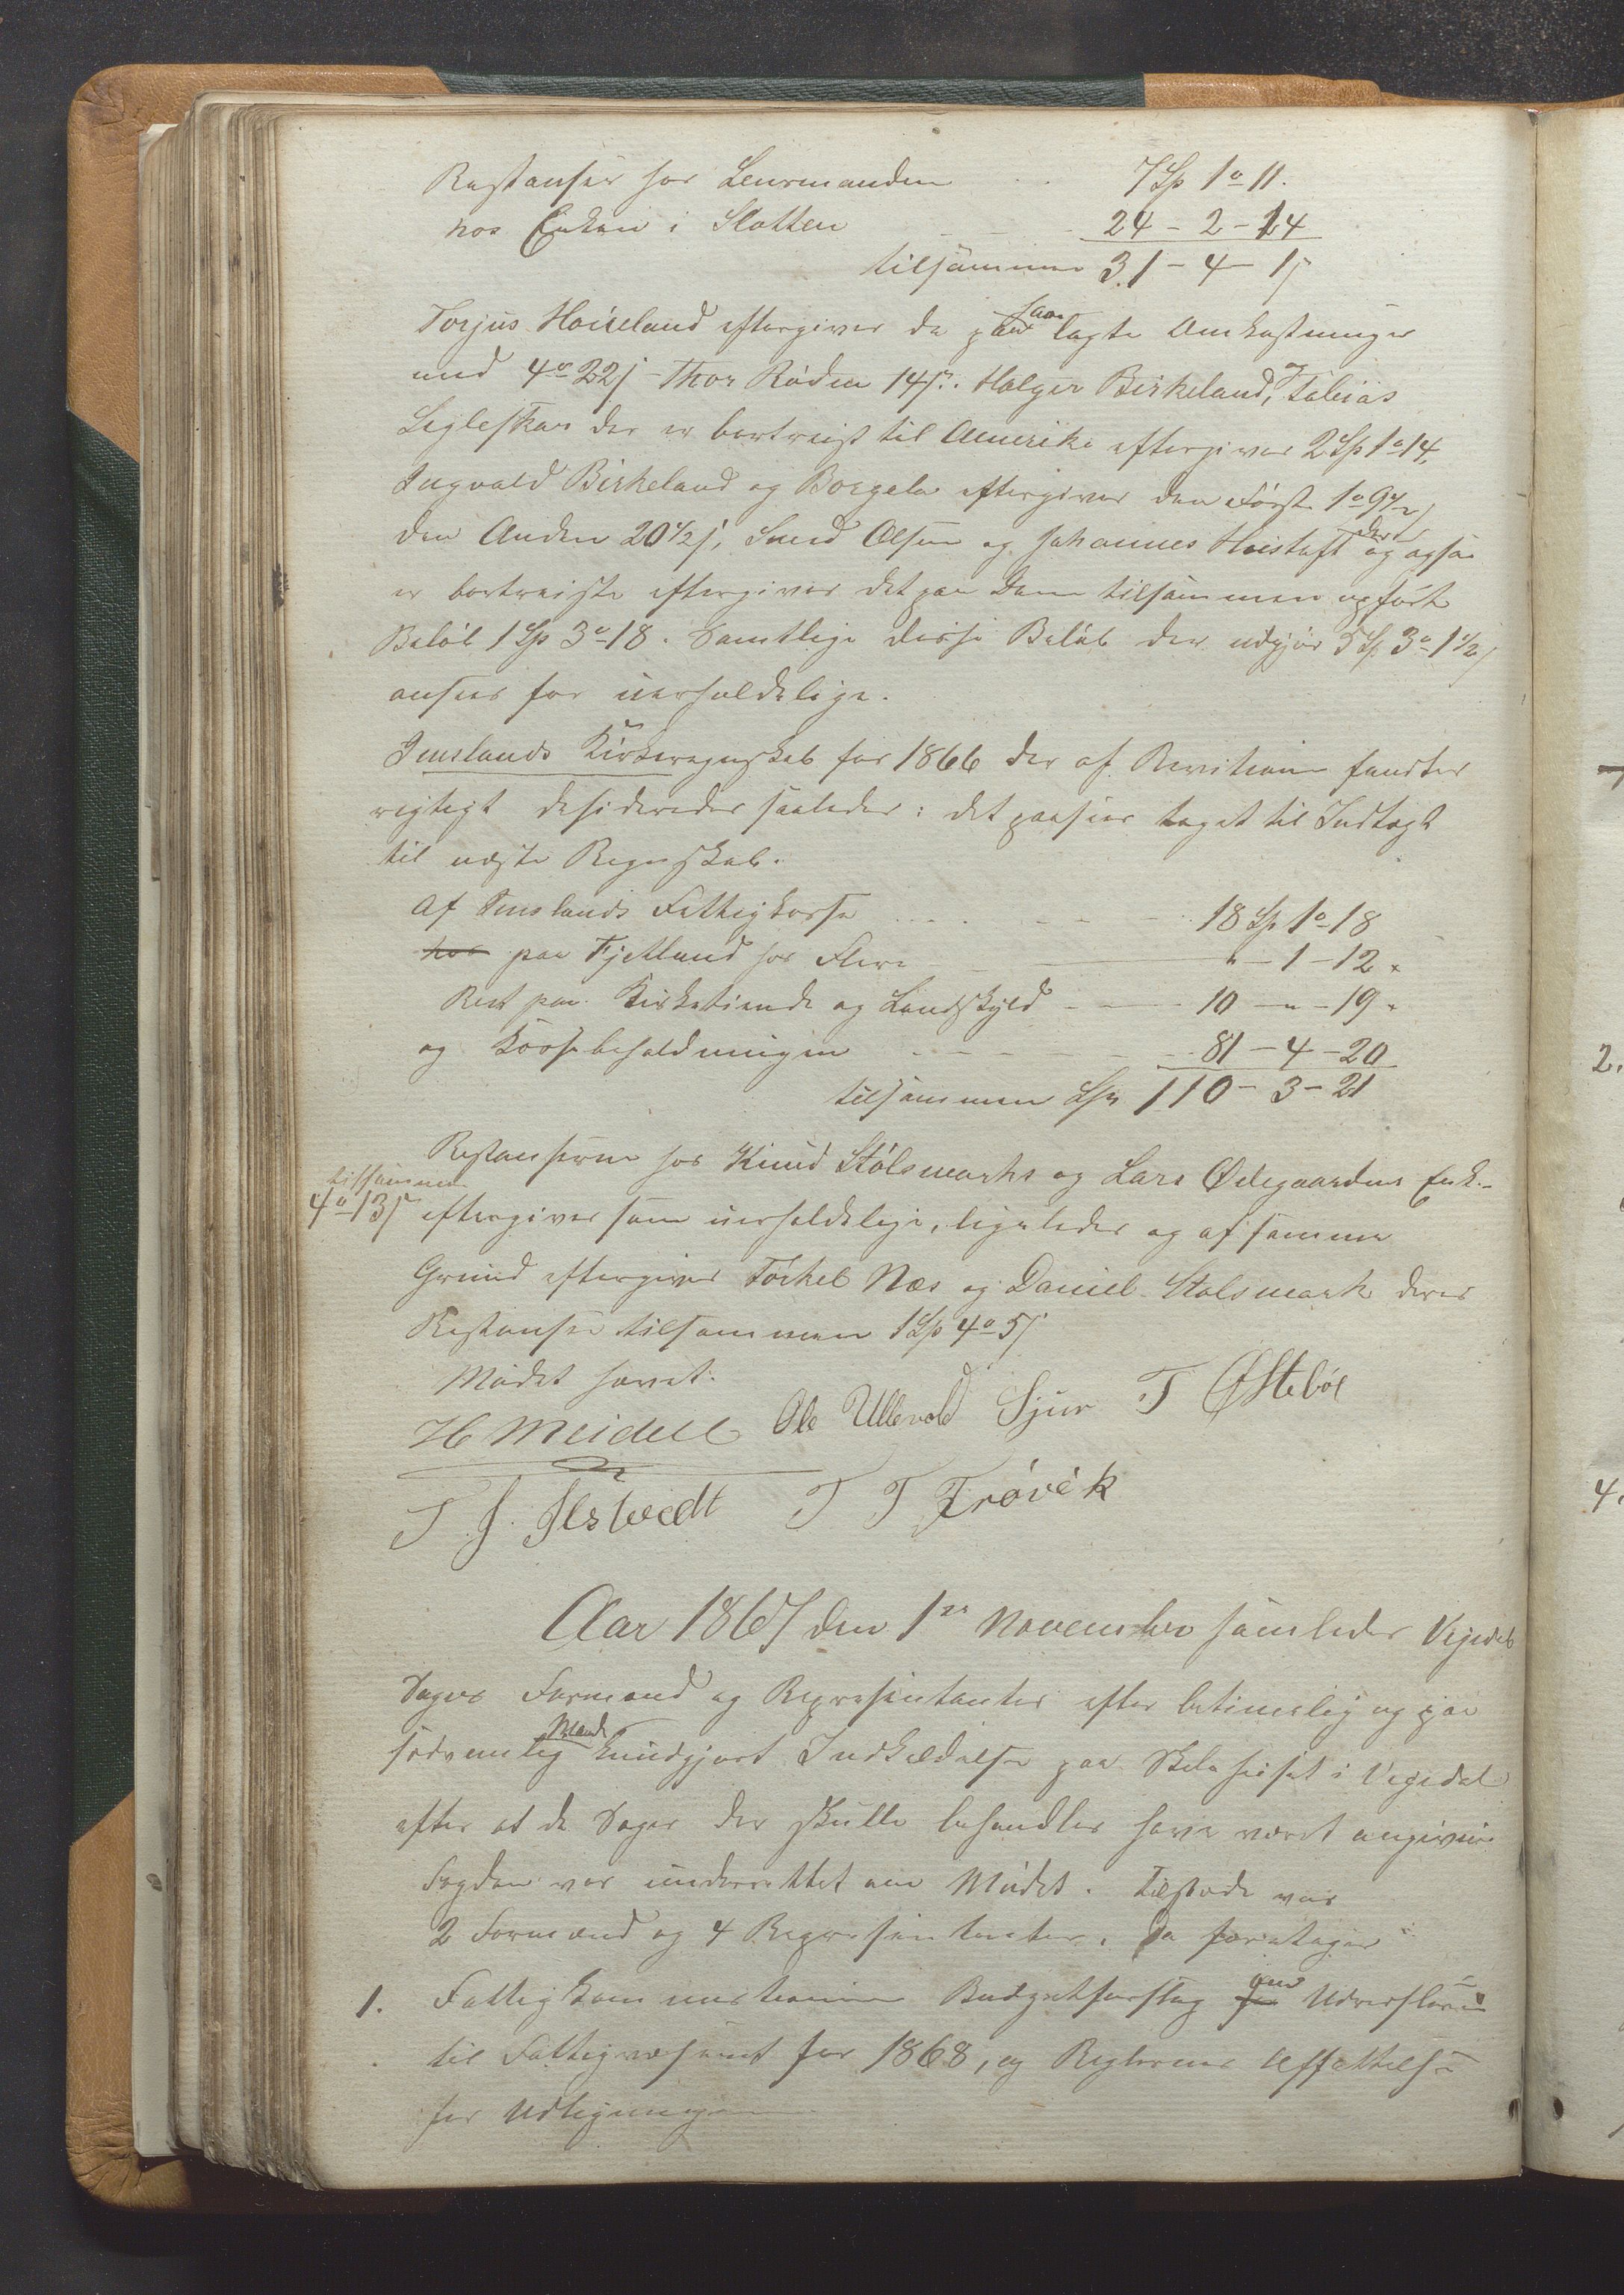 Restanser hos Lensmanden . . 7 Sp 1 o 11.
hos Enken i Slotten - - - 24 - 2 - 14
tilsammen 31 - 4 - 1 s
Torjus Hoiseland eftergives de paa lagte Omkostninger
med 4 o 22 s - Thor Röden 14 s. Holger Birkeland, Tobias
Legleskar der er bortreist til Amerika eftergives 2 Sp 1 o 14,
Ingvald Birkeland og Borgela eftergives den Först 1 o 9 1/2 s
den Anden 20 1/2 s, Svend Olsen og Johannes Hoistoft der og ogsaa
er bortreiste eftergives det paa Dem tilsammen opförte
Belöb 1 Sp 3 o 18. Samtlige disse Belöb der udgjör 5 Sp 3 o 1 1/2 s
ansees for uerholdelige.
Imslands Kirkeregnskab for 1866 der af Revisionen fandtes
rigtigt desideredes saaledes: det paasees taget til Indtægt
til næste Regnskab.
Af Imslands Fattigkasse . . . - - - 18 Sp 1 o 18
hos paa Fjetland hos Flere - - " - 1 - 12 "
Rest paa Kirketiende og Landskyld - - 10 - " - 19 "
og Kassebeholdningen - - - - 81 - 4 - 20
tilsammen Spd 110 - 3 - 21
Restanserne hos Knud Stölsmarks og Lars Ødegaardens Enk-
tilsammen
4 o 13 s eftergives som uerholdelige, ligeledes og af samme
Grund eftergives Törkel Næs og Daniel Stolsmark deres
Restanser tilsammen 1 Sp 4 o 5 s
Mödet hævet.
H Meidell Ole Ullevold Sjur T Østeböe
T. J. Ilstvedt T T Frövik
Aar 1867 den 1ste November samledes Vigedals
Sogns Formænd og Repræsentanter efter betimelig og paa
sædvanlig Maade kundgjort Indkaldelse paa Skolehuset i Vigedal
efter at de Sager der skulle behandles have været angivne.
Fogden var underrettet om Mödet. Tilstede var
2 Formænd og 4 Repræsentanter. Da foretoges
1. Fattigkommissionens Budgetforslag for om Udredsler
til Fattigvæsenet for 1868, og Reglernes Affattelse
for Udligningen